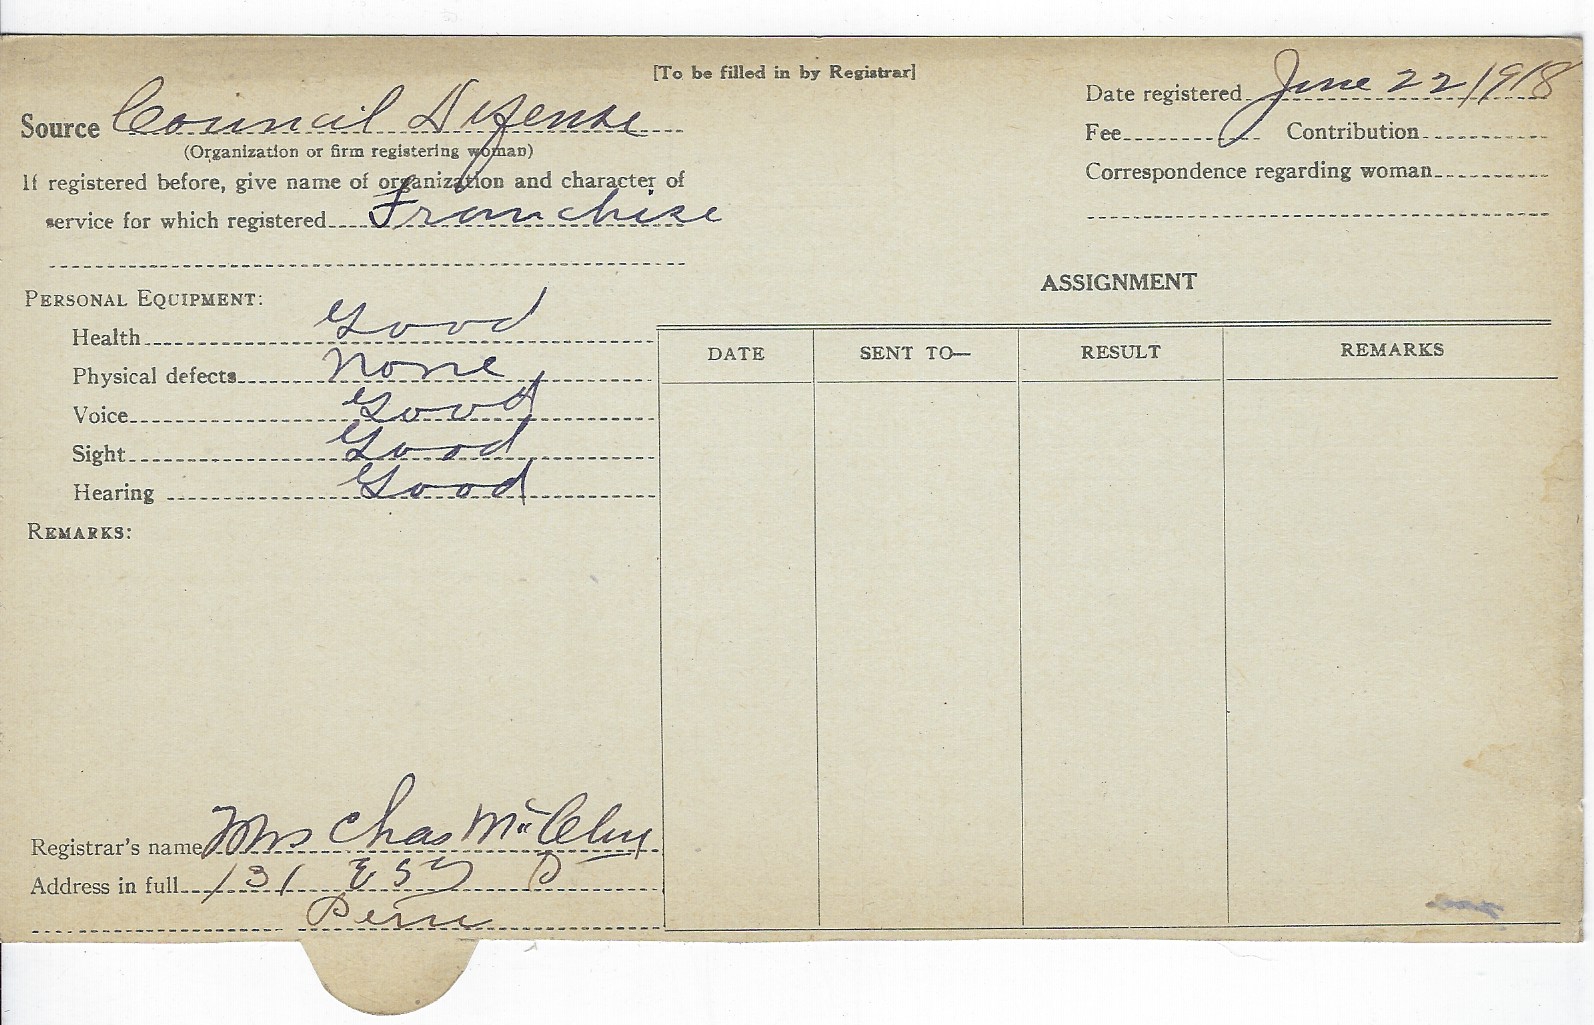 [To be filled in by Registrar]
Source Council Defense
(Organization or firm registering woman)
If registered before, give name of organization and character of
service for which registered Franchise
Date registered June 22 1918
Fee Contribution
Correspondence regarding woman
PERSONAL EQUIPMENT:
Health Good
Physical defects None
Voice Good
Sight Good
Hearing Good
REMARKS:
ASSIGNMENT
DATE SENT TO— RESULT REMARKS
Registrar's name Mrs Chas
Address in full 131 E 5
Peru